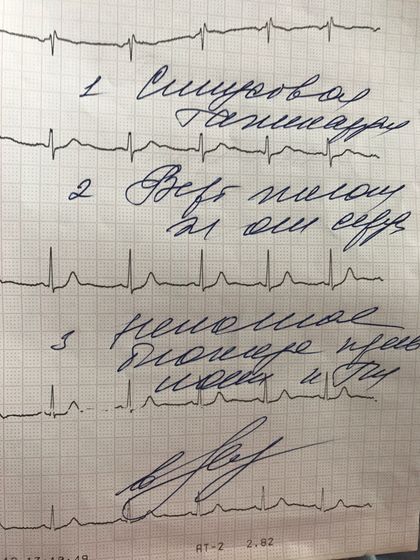 1 Синусовая
тахикардия
2 Верт полож
эл оси сердц
3 Неполная
блокада прав
ножки п Ги
АТ-2 2.82